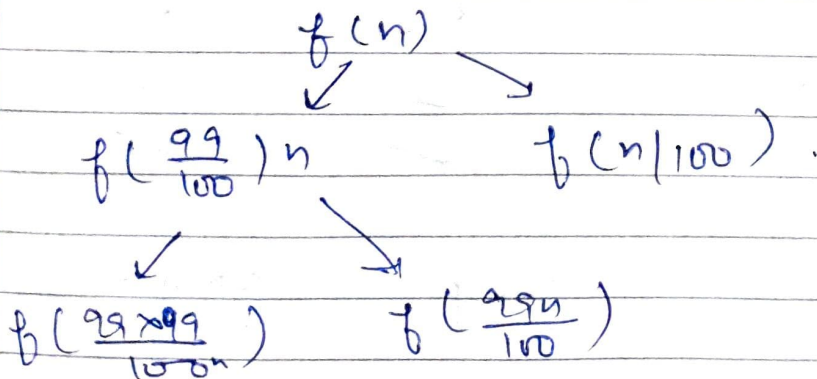 f(n)
f(99/100)n f(n/100).
f(99×99/100n) f(99n/100)